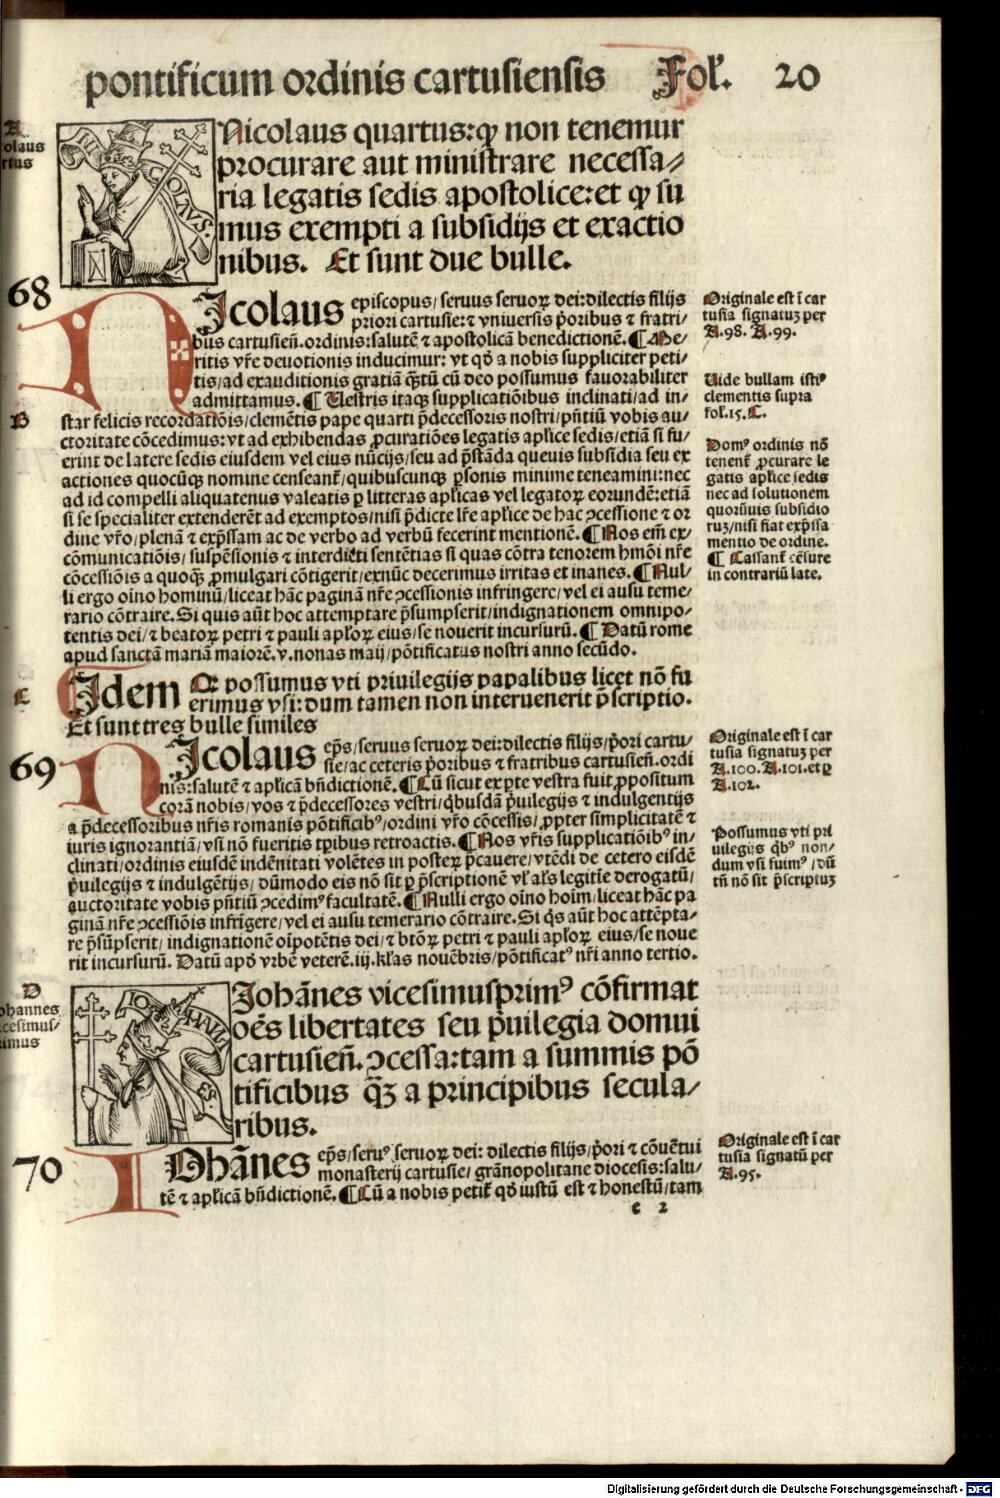 pontificum ordinis cartusiensis Fol'. 20
A
olaus
rtus
NICOLAVS
Nicolaus quartus: ꝙ non tenemur
procurare aut ministrare necessa⸗
ria legatis sedis apostolice: et ꝙ su
mus exempti a subsidijs et exactio
nibus. Et sunt due bulle.
68
NIcolaus episcopus/ seruus seruoꝝ dei: dilectis filijs
priori cartusie: ⁊ vniuersis p̄oribus ⁊ fratri/
bus cartusien̄. ordinis: salutē ⁊ apostolicā benedictionē. ¶ Me/
ritis vr̄e deuotionis inducimur: vt qd̄ a nobis suppliciter peti/
tis/ ad exauditionis gratiā q̄ꝫtū cū deo possumus fauorabiliter
admittamus. ¶ Uestris itaqꝫ supplicatiōibus inclinati/ ad in/
B
star felicis recordatiōis/ clemētis pape quarti p̄decessoris nostri/ pn̄tiū vobis au/
ctoritate cōcedimus: vt ad exhibendas ꝓcuratiōes legatis apl̄ice sedis/ etiā si fu/
erint de latere sedis eiusdem vel eius nūcijs/ seu ad p̄stāda queuis subsidia seu ex
actiones quocūqꝫ nomine censeant᷑/ quibuscunqꝫ ꝑsonis minime teneamini: nec
ad id compelli aliquatenus valeatis ꝑ litteras apl̄icas vel legatoꝝ eorundē: etiā
si se specialiter extenderēt ad exemptos/ nisi p̄dicte lr̄e apl̄ice de hac ↄcessione ⁊ or
dine vr̄o/ plenā ⁊ exp̄ssam ac de verbo ad verbū fecerint mentionē. ¶ Nos em̄ ex/
cōmunicatiōis/ suspēsionis ⁊ interdicti sentētias si quas cōtra tenorem hmōi nr̄e
cōcessiōis a quoqꝫ ꝓmulgari cōtigerit/ exnūc decerimus irritas et inanes. ¶ Nul/
li ergo oīno hominū/ liceat hāc paginā nr̄e ↄcessionis infringere/ vel ei ausu teme/
rario cōtraire. Si quis aūt hoc attemptare p̄sumpserit/ indignationem omnipo/
tentis dei/ ⁊ beatoꝝ petri ⁊ pauli apl̄oꝝ eius/ se nouerit incursurū. ¶ Datū rome
apud sanctā mariā maiorē. v. nonas maij/ pōtificatus nostri anno secūdo.
Originale est ī car
tusia signatuꝫ per
A.98. A.99.
Uide bullam istiꝰ
clementis supra
fol.15.C.
Domꝰ ordinis nō
tenent᷑ ꝓcurare le
gatis apl̄ice sedis
nec ad solutionem
quorūuis subsidio
ruꝫ/ nisi fiat exp̄ssa
mentio de ordine.
¶ Cassant᷑ cēsure
in contrariū late.
C
Idem Qꝫ possumus vti priuilegijs papalibus licet nō fu
erimus vsi: dum tamen non interuenerit p̄scriptio.
Et sunt tres bulle similes
69
NIcolaus ep̄s/ seruus seruoꝝ dei: dilectis filijs/ p̄ori cartu/
sie/ ac ceteris p̄oribus ⁊ fratribus cartusien̄. ordi
nis: salutē ⁊ apl̄icā bn̄dictionē. ¶ Cū sicut ex ꝑte vestra fuit ꝓpositum
corā nobis/ vos ⁊ p̄decessores vestri/ qb̄usdā p̄uilegijs ⁊ indulgentijs
a p̄decessoribus nr̄is romanis pōtificibꝰ/ ordini vr̄o cōcessis/ ꝓpter simplicitatē ⁊
iuris ignorantiā/ vsi nō fueritis tꝑibus retroactis. ¶ Nos vr̄is supplicatiōibꝰ in/
clinati/ ordinis eiusdē indēnitati volētes in posteꝝ p̄cauere/ vtēdi de cetero eisdē
p̄uilegijs ⁊ indulgētijs/ dūmodo eis nō sit ꝑ p̄scriptionē vl̄ al̄s legitīe derogatū/
auctoritate vobis pn̄tiū ↄcedimꝰ facultatē. ¶ Nulli ergo oīno hoīm/ liceat hāc pa
ginā nr̄e ↄcessiōis infrīgere/ vel ei ausu temerario cōtraire. Si qs̄ aūt hoc attēpta/
re p̄sūpserit/ indignationē oīpotētis dei/ ⁊ btōꝝ petri ⁊ pauli apl̄oꝝ eius/ se noue
rit incursurū. Datū apd̄ vrbē veterē. iij. kl̄as nouēbris/ pōtificatꝰ nr̄i anno tertio.
Originale est ī car
tusia signatuꝫ per
A.100. A.101. et ꝑ
A.102.
Possumus vti pri
uilegijs qb̄ꝰ non/
dum vsi fuimꝰ/ dū
tn̄ nō sit p̄scriptuꝫ
D
ohannes
icesimus/
rimus
Johānes vicesimusprimꝰ cōfirmat
oēs libertates seu p̄uilegia domui
cartusien̄. ↄcessa: tam a summis pō
tificibus q̄ꝫ a principibus secula⸗
ribus.
70
IOhānes ep̄s/ seruꝰ seruoꝝ dei: dilectis filijs/ p̄ori ⁊ cōuētui
monasterij cartusie/ gr̄anopolitane diocesis: salu/
tē ⁊ apl̄icā bn̄dictionē. ¶ Cū a nobis petit᷑ qd̄ iustū est ⁊ honestū/ tam
Originale est ī car
tusia signatū per
A.95.
c 2
Digitalisierung gefördert durch die Deutsche Forschungsgemeinschaft - DFG